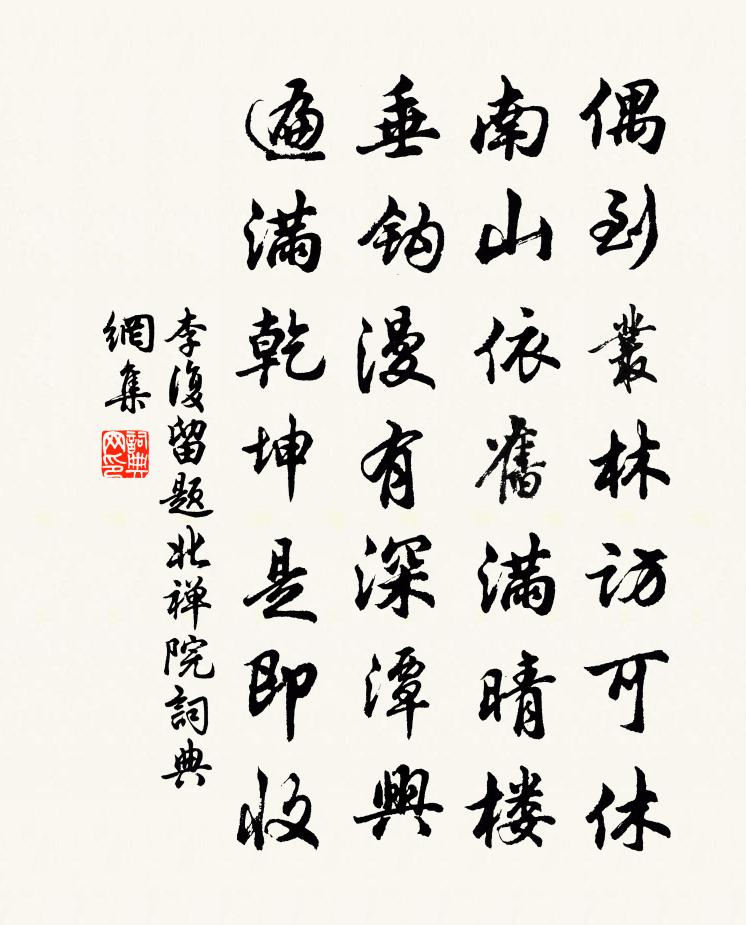 偶到叢林訪可休
南山依舊满晴楼
垂鈎漫有深潭興
遍滿乾坤是即收
李復留題北禅院詞典
網集
詞典網印